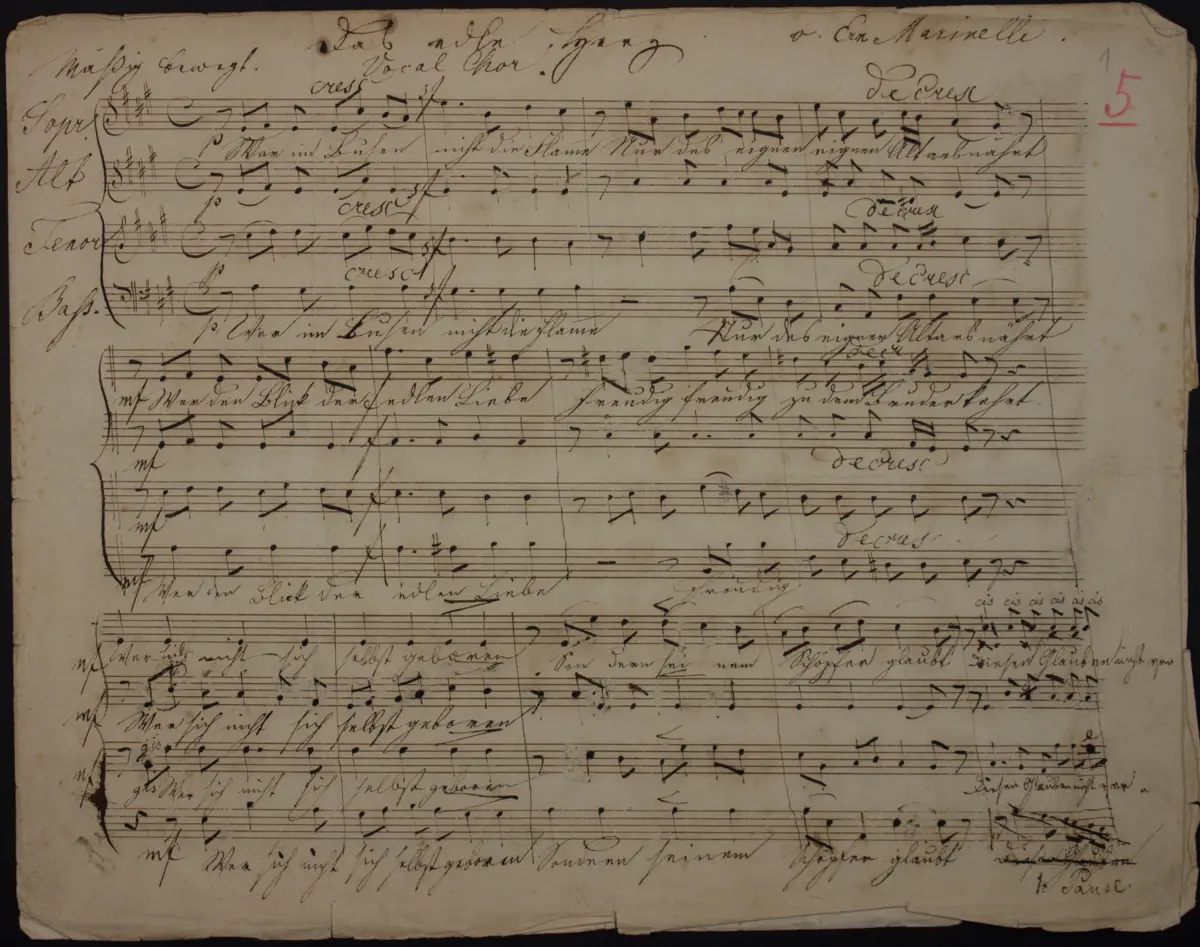 Das edle Herz v. Ern Marinelli.
Mäßig bewegt. Vocal Chor.
1
5
cresc decresc
Sopr
p Wer im Busen nicht die Flame Nur des eignen eignen Altars nährt
Alt
p cresc decresc
Tenor
p cresc decresc
Bass.
p. Wer im Busen nicht die Flamme Nur des eignen Altars nährt
decr
mf Wer den Blick der edlen Liebe Freudig freudig zu dem Bruder kehrt
f
mf decresc
f
mf decresc
mf Wer den Blick der edlen Liebe Freudig
cis cis cis cis cis cis
mf Wer sich nicht sich selbst geboren Son dern sei nem Schöpfer glaubt Diesen Glauben nicht ver
mf Wer sich nicht sich selbst geboren
mf gis Wer sich nicht sich selbst geboren Diesen Glauben nicht ver
mf Wer sich nicht sich selbst geboren Sondern seinem Schöpfer glaubt
1 Pause.